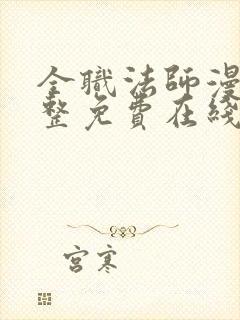 全職法師漫
整免費在綫
宮寒